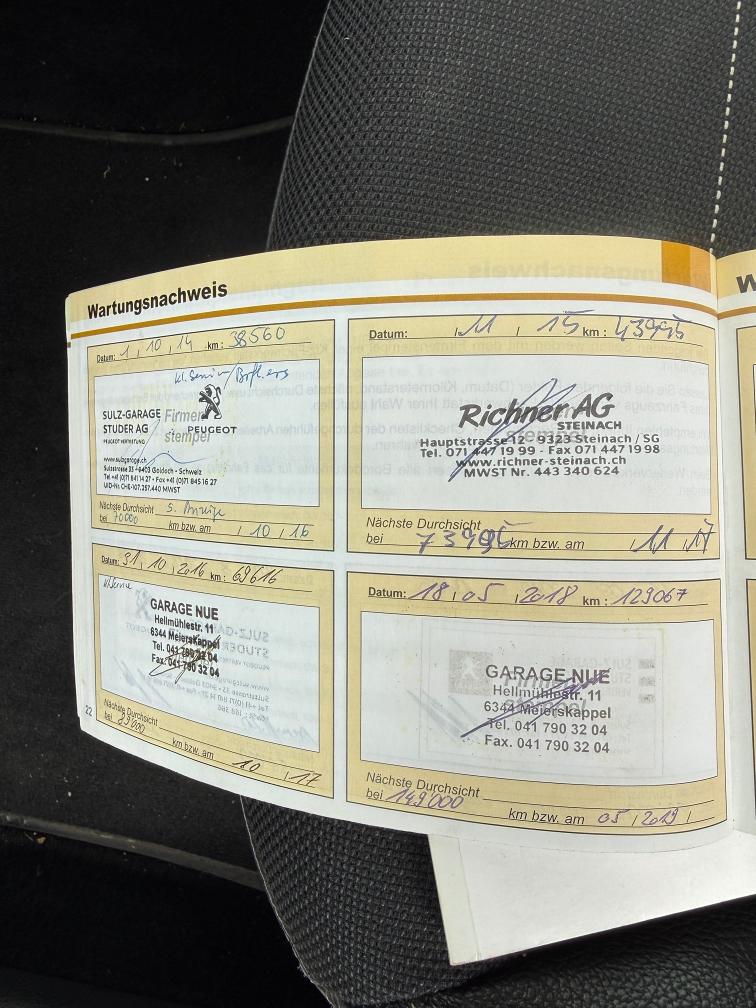 Wartungsnachweis
Datum: 1, 10, 14 km: 38560
kl. Service/
SULZ-GARAGE
STUDER AG
PEUGEOT VERTRETUNG
Firmen
stempel
PEUGEOT
www.sulzgarage.ch
Sulzstrasse 33 • 9403 Goldach • Schweiz
Tel +41 (0)71 841 14 27 • Fax +41 (0)71 845 16 27
UID-Nr. CHE-107.257.440 MWST
Nächste Durchsicht s. Anzeige
bei 70000 km bzw. am / 10 / 16
Datum: , 11 , 15 km:
Richner AG
STEINACH
stempel
Hauptstrasse 12 - 9323 Steinach / SG
Tel. 071 447 19 99 - Fax 071 447 19 98
www.richner-steinach.ch
MWST Nr. 443 340 624
Nächste Durchsicht
bei km bzw. am / 11 / 17
Datum: 31, 10, 2016 km: 69616
kl Service
GARAGE NUE
Hellmühlestr. 11
6344 Meierskappel
Tel. 041 790 32 04
Fax. 041 790 32 04
Nächste Durchsicht
bei 89000 km bzw. am 10 / 17
22
Datum: 18, 05, 2018 km: 129067
GARAGE NUE
Hellmühlestr. 11
6344 Meierskappel
Tel. 041 790 32 04
Fax. 041 790 32 04
Nächste Durchsicht
bei 149000 km bzw. am 05 / 2019 /
W